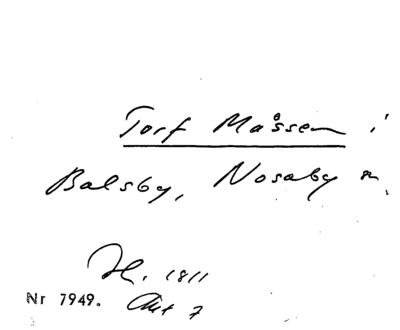 Torf Måssen i
Balsby, Nosaby sn.
H. 1811
Nr 7949. Akt 7